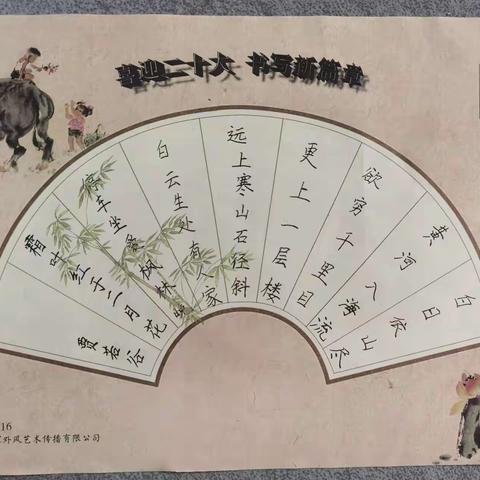 喜迎二十大 书写新篇章
白日依山尽
黄河入海流
欲穷千里目
更上一层楼
远上寒山石径斜
白云生处有人家
停车坐爱枫林晚
霜叶红于二月花
贾若谷
16
外风艺术传播有限公司